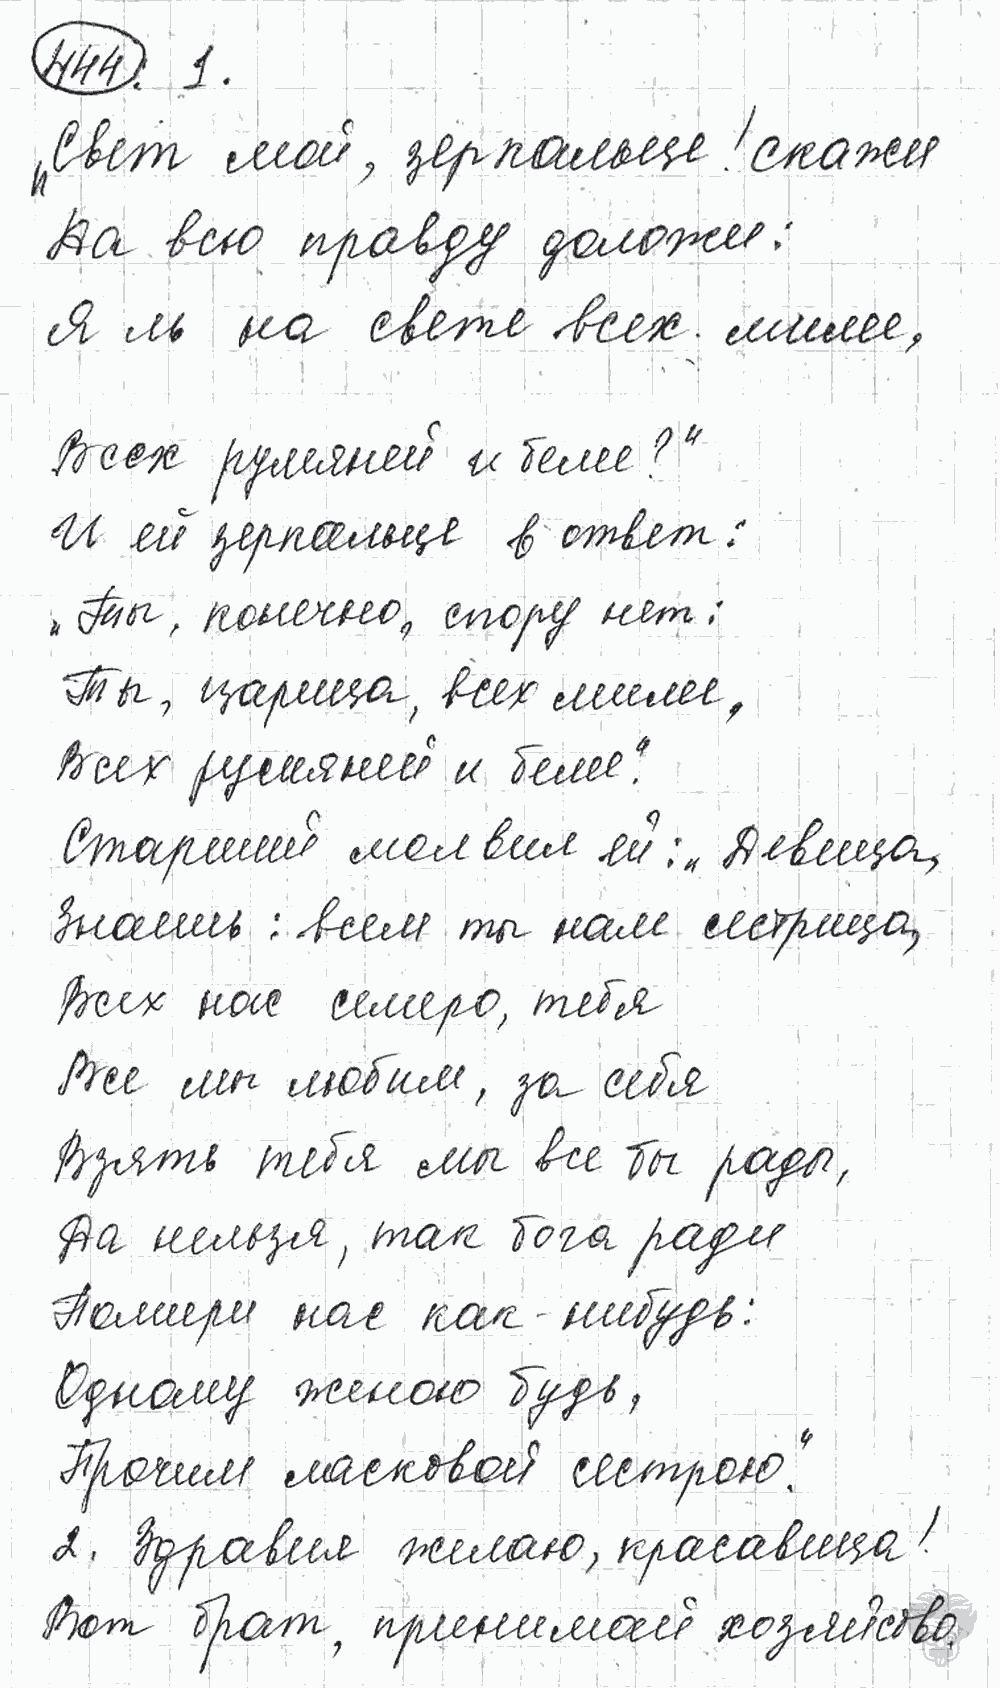 444. 1.
„Свет мой, зеркальце! скажи
Да всю правду доложи:
Я ль на свете всех милее,
Всех румяней и белее?“
И ей зеркальце в ответ:
„Ты, конечно, спору нет:
Ты, царица, всех милее,
Всех румяней и белее“.
Старший молвил ей: „Девица,
Знаешь: всем ты нам сестрица,
Всех нас семеро, тебя
Все мы любим, за себя
Взять тебя мы все бы рады,
Да нельзя, так бога ради
Помири нас как-нибудь:
Одному женою будь,
Прочим ласковой сестрою“.
2. Здравия желаю, красавица!
Вот брат, принимай хозяйство.